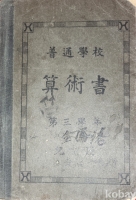 普通學校
算術書
第三學年
kobay